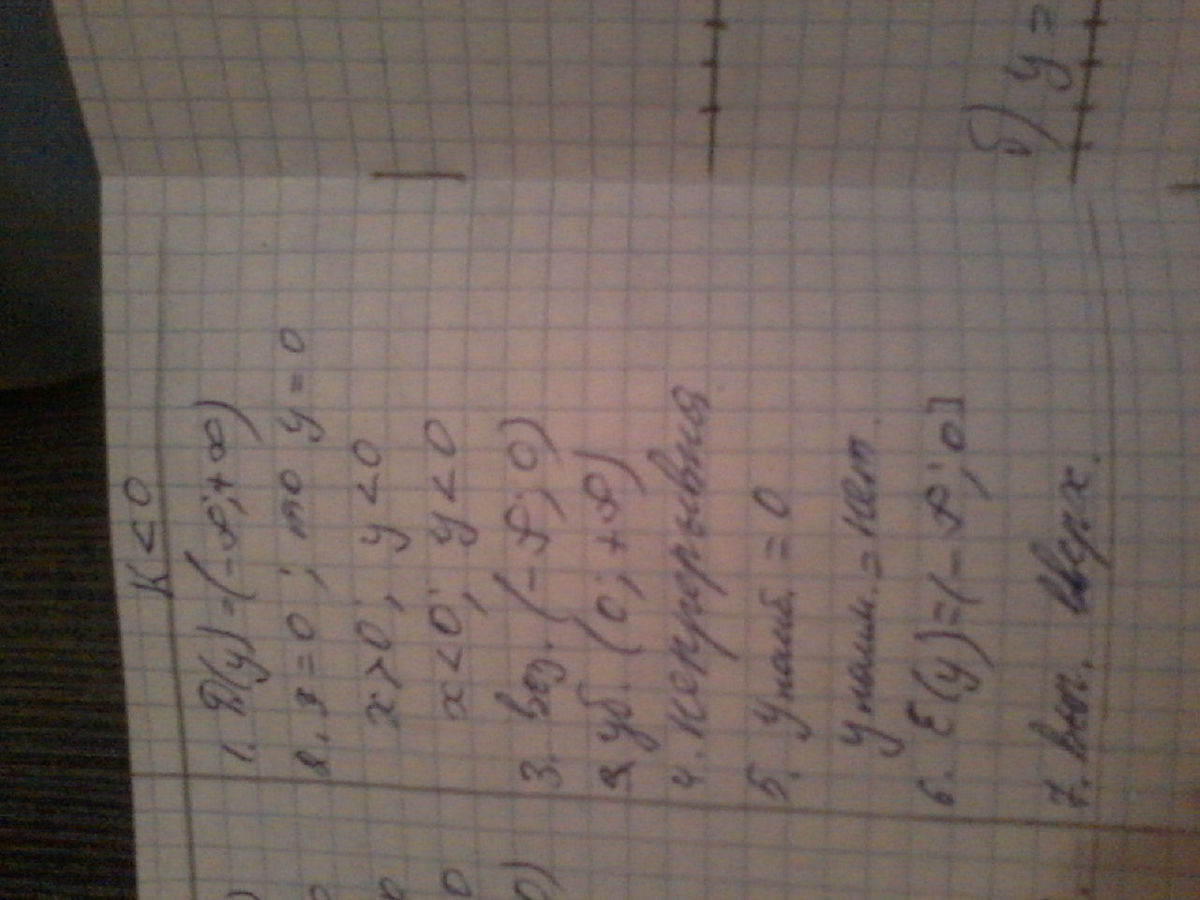 K < 0
1. D(y) = (-∞; +∞)
2. x = 0; то y = 0
x > 0; y < 0
x < 0; y < 0
3. воз. (-∞; 0)
уб. (0; +∞)
4. непрерывная
5. y наиб. = 0
y наим. = нет.
6. E(y) = (-∞; 0]
7. вып. вверх.
б) y =